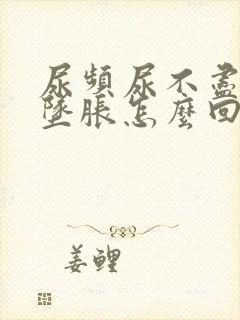 尿頻尿不盡
墜脹怎麼回
姜鲤